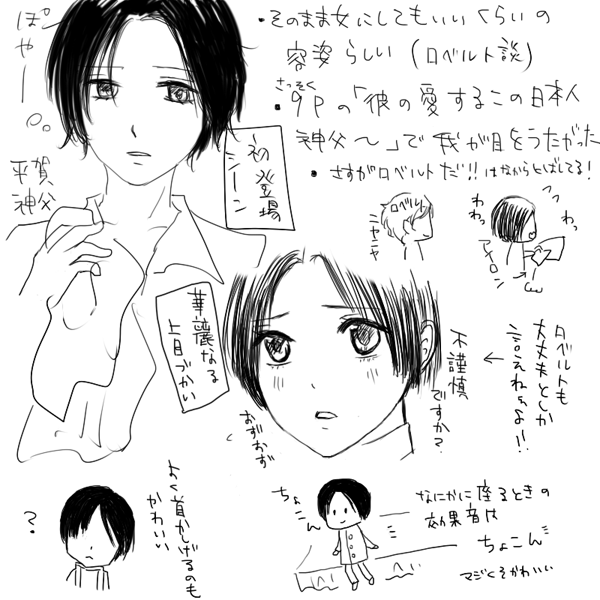 ぽやー。。
平賀
神父
・そのまま女にしてもいいくらいの
容姿らしい(ロベルト談)
・さっそく9Pの「彼の愛するこの日本人
神父〜」で我が目をうたがった
・さすがロベルトだ!!はなからとばしてる!
初登場
シーン
ロベルト
ニヤニヤ
わわっ
わっ
アイロン
華麗なる
上目づかい
不謹慎
ですか?
おずおず
←
ロベルトも
大丈夫としか
言えねぇよ!!
?
よく首かしげるのも
かわいい
ちょこん
なにかに座るときの
効果音は
ちょこん
マジくそかわいい